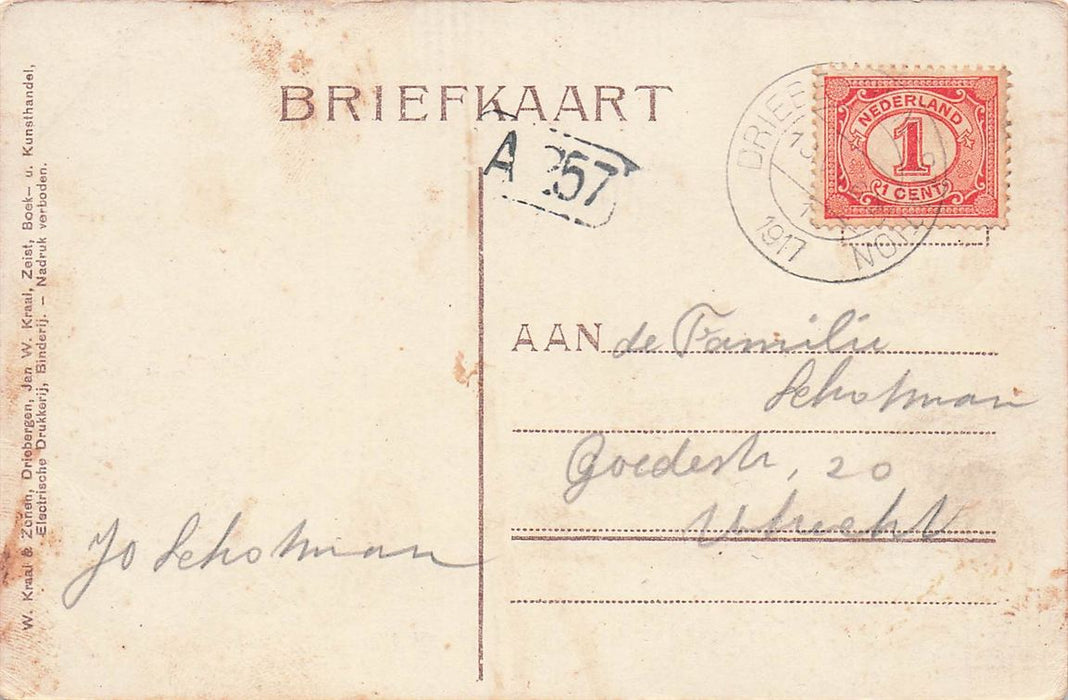 BRIEFKAART
A 257
NEDERLAND
1
1 CENT
1917
W. Kraal & Zonen, Driebergen, Jan W. Kraal, Zeist, Boek- u. Kunsthandel,
Electrische Drukkerij, Binderij. – Nadruk verboden.
AAN de Familie
Schotman
Goedestr, 20
Utrecht
Jo Schotman